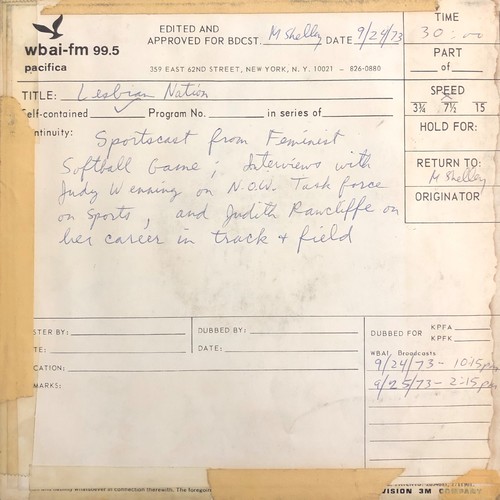 wbai-fm 99.5
pacifica
EDITED AND
APPROVED FOR BDCST. M Shelley DATE 9/24/73
359 EAST 62ND STREET, NEW YORK, N. Y. 10021 - 826-0880
TIME
30:00
PART
of
TITLE: Lesbian Nation
SPEED
3¾ 7½ 15
elf-contained Program No. in series of
HOLD FOR:
ontinuity: Sportscast from Feminist
Softball Game; Interviews with
Judy Wenning on N.O.W. Task force
on Sports, and Judith Rancliffe on
her career in track + field
RETURN TO:
M Shelley
ORIGINATOR
STER BY:
TE:
DUBBED BY:
DATE:
DUBBED FOR KPFA
KPFK
CATION:
MARKS:
WBAI Broadcasts
9/24/73 - 10:15 pm
9/25/73 - 2:15 pm
VISION 3M COMPANY